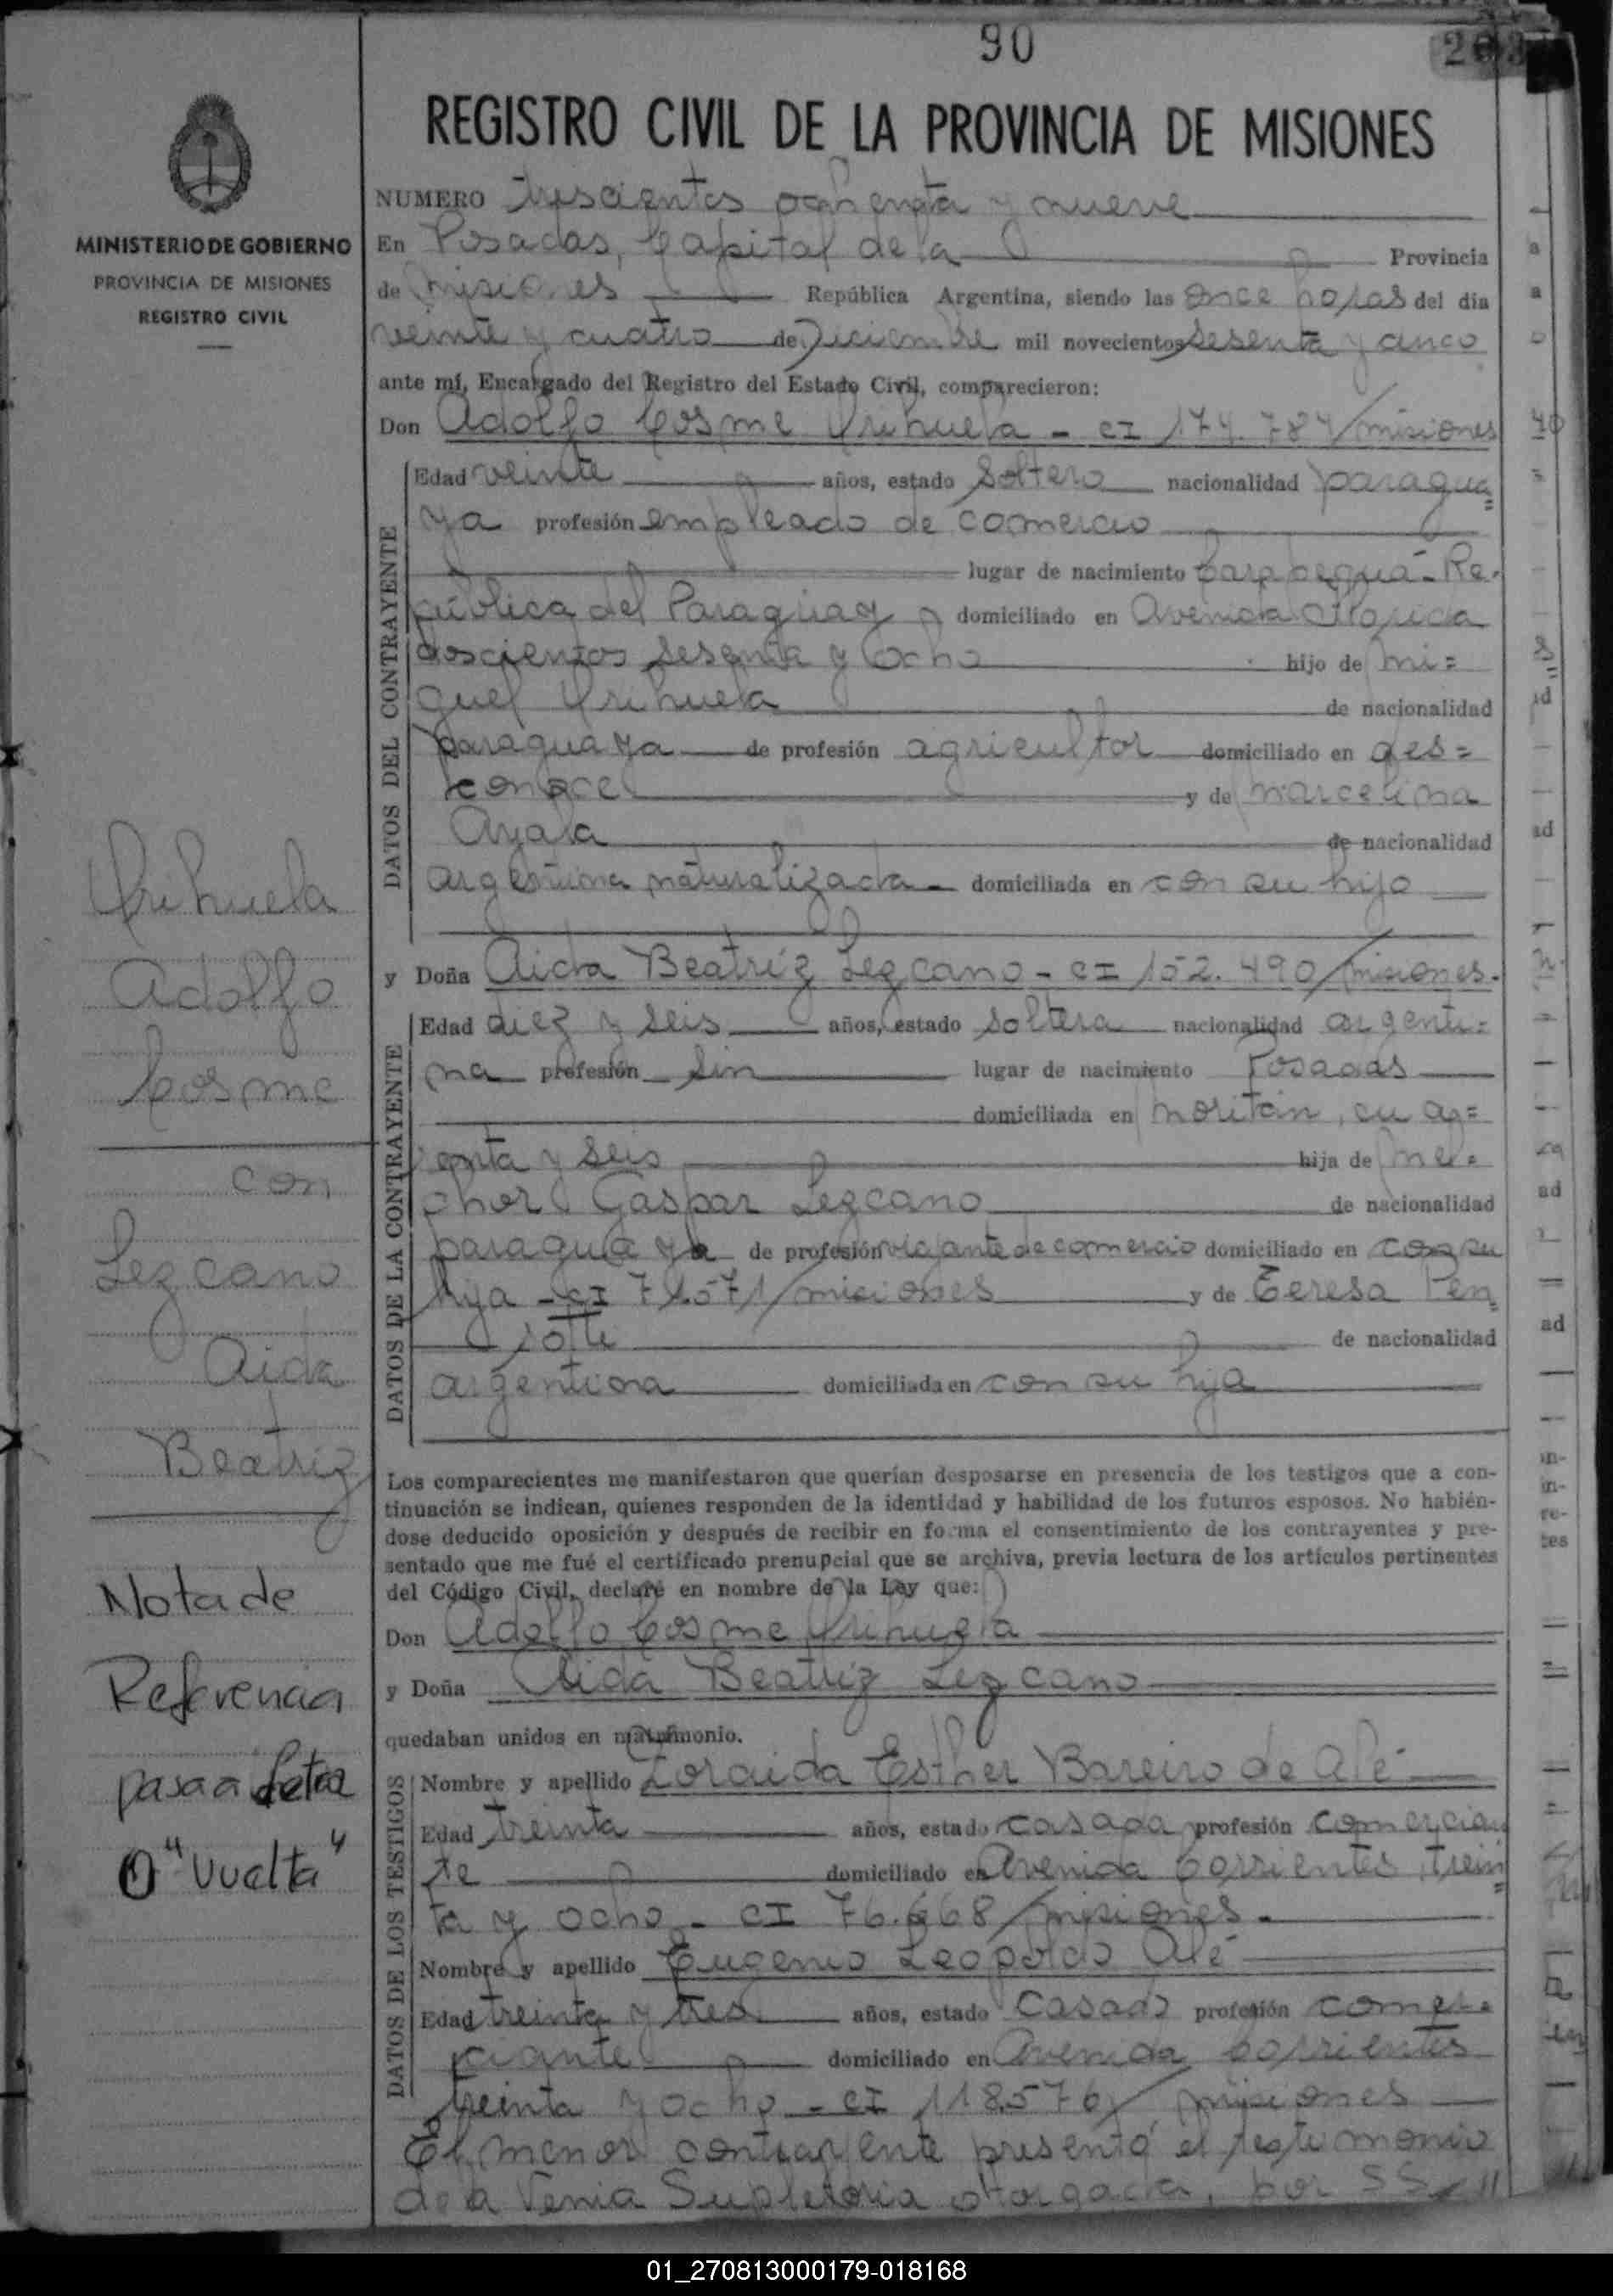 90
REGISTRO CIVIL DE LA PROVINCIA DE MISIONES
MINISTERIO DE GOBIERNO
PROVINCIA DE MISIONES
REGISTRO CIVIL
NUMERO trescientos ochenta y nueve
En Posadas, Capital de la Provincia
de Misiones República Argentina, siendo las once horas del día
veinte y cuatro de Diciembre mil novecientos sesenta y cinco
ante mí, Encargado del Registro del Estado Civil, comparecieron:
Don Adolfo Cosme Yrihuela - CI 174.784/misiones
DATOS DEL CONTRAYENTE
Edad veinte años, estado soltero nacionalidad paragua=
ya profesión empleado de comercio
lugar de nacimiento Carapeguá - Re-
pública del Paraguay domiciliado en Avenida
doscientos sesenta y ocho hijo de Mi=
guel Yrihuela de nacionalidad
paraguaya de profesión agricultor domiciliado en des=
conoce y de Marcelina
Ayala de nacionalidad
argentina naturalizada - domiciliada en con su hijo
y Doña Aida Beatriz Lezcano - CI 152.490/misiones.
DATOS DE LA CONTRAYENTE
Edad diez y seis años, estado soltera nacionalidad argenti=
na profesión sin lugar de nacimiento Posadas
domiciliada en Moritán, cua=
renta y seis hija de Mel=
chor Gaspar Lezcano de nacionalidad
paraguaya de profesión viajante de comercio domiciliado en con su
hija - CI misiones y de Teresa Pen
sotti de nacionalidad
argentina domiciliada en con su hija
Los comparecientes me manifestaron que querían desposarse en presencia de los testigos que a con-
tinuación se indican, quienes responden de la identidad y habilidad de los futuros esposos. No habién-
dose deducido oposición y después de recibir en forma el consentimiento de los contrayentes y pre-
sentado que me fué el certificado prenupcial que se archiva, previa lectura de los artículos pertinentes
del Código Civil, declaré en nombre de la Ley que:
Don Adolfo Cosme Yrihuela
y Doña Aida Beatriz Lezcano
quedaban unidos en matrimonio.
DATOS DE LOS TESTIGOS
Nombre y apellido Zoraida Esther Bareiro de Alé
Edad treinta años, estado casada profesión comercian
te domiciliado en Avenida Corrientes trein=
ta y ocho - CI 76.668/misiones -
Nombre y apellido Eugenio Leopoldo Alé
Edad treinta y tres años, estado casado profesión comer=
ciante domiciliado en Avenida Corrientes
treinta y ocho - CI 118576/misiones
El menor contrayente presentó el testimonio
de la Venia Supletoria otorgada, por SS
Yrihuela
Adolfo
Cosme
con
Lezcano
Aida
Beatriz
Nota de
Referencia
pasa a
"Vuelta"
01_270813000179-018168